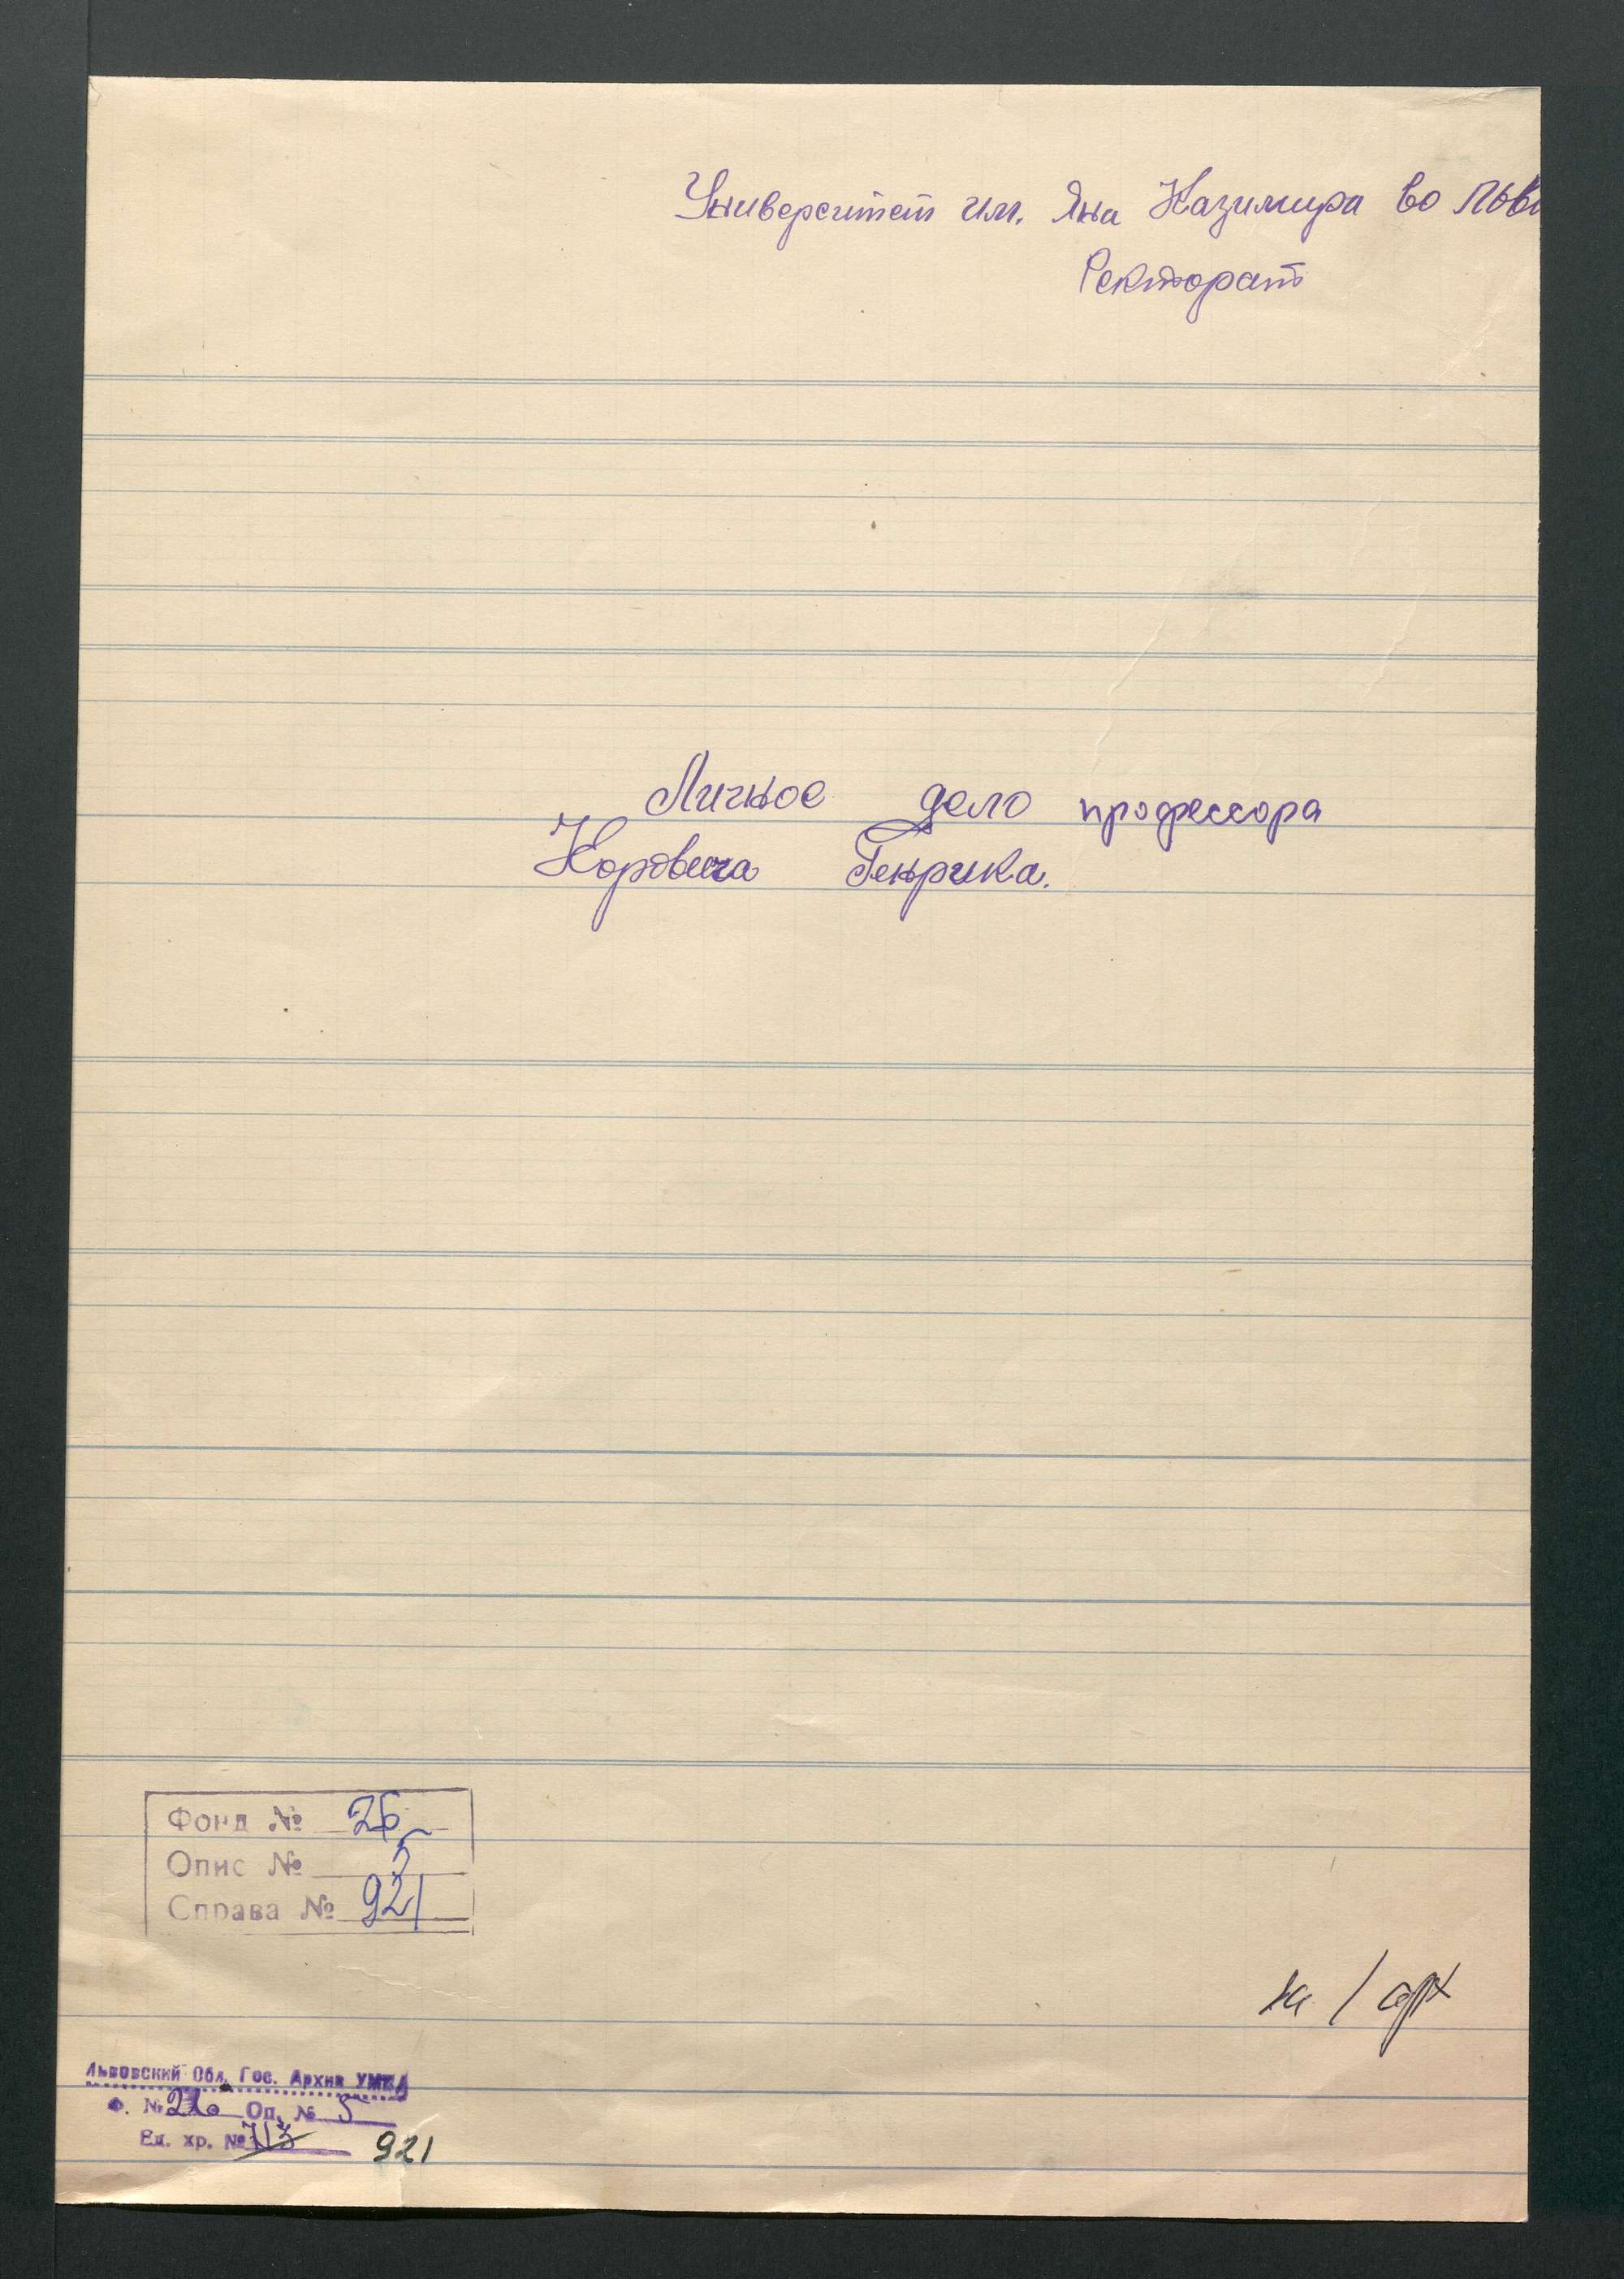 Университет им. Яна Казимира во Льво
Ректорат
Личное дело профессора
Коровича Генрика.
Фонд № 26
Опис № 5
Справа № 921
Львовский Обл. Гос. Архив УМВД
Ф. № 26 Оп. № 5
Ед. хр. № 713 921